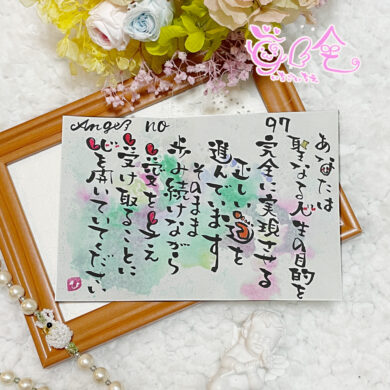 Angel no
97
あなたは
聖なる人生の目的を
完全に実現させる
正しい道を
進んでいます
そのまま
歩み続けながら
愛を与え
受け取ることに
心を開いていてください